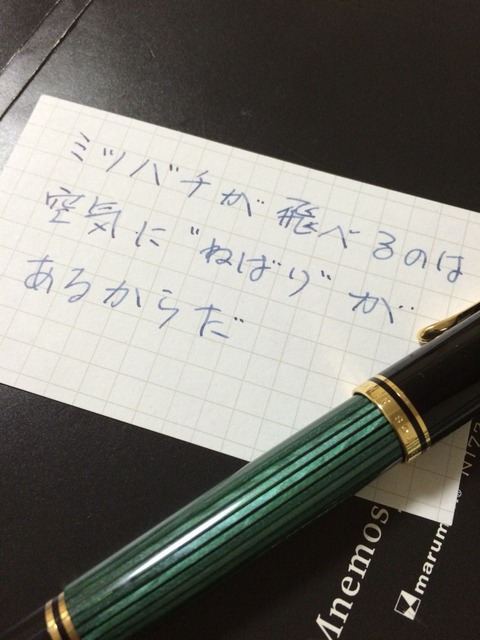 ミツバチが飛べるのは
空気に"ねばり"が
あるからだ
Mnemos
marum
N173